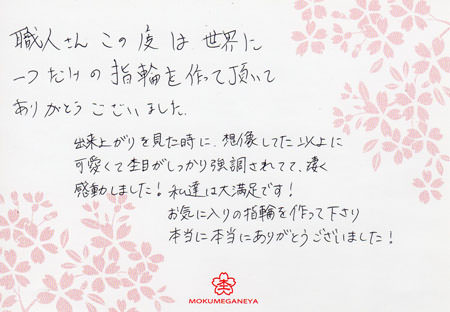 職人さん この度は世界に
一つだけの指輪を作って頂いて
ありがとうございました.
出来上がりを見た時に、想像してた以上に
可愛くて杢目がしっかり強調されてて、凄く
感動しました!私達は大満足です!
お気に入りの指輪を作って下さり
本当に本当にありがとうございました!
杢
MOKUMEGANEYA